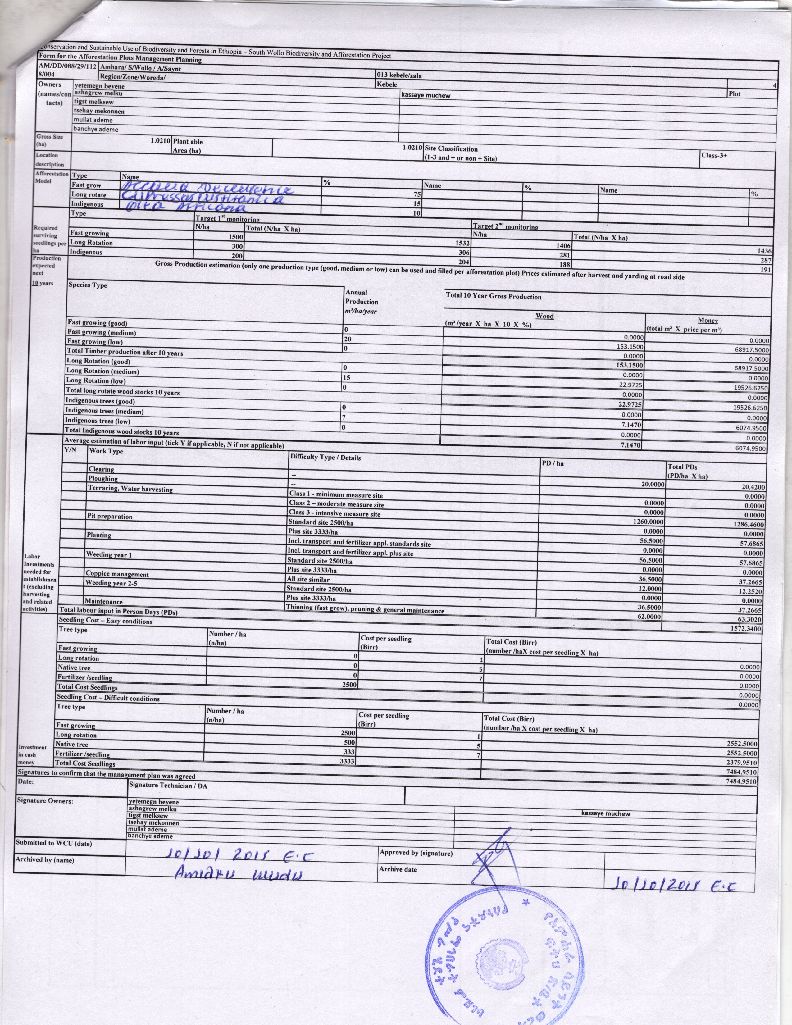 Conservation and Sustainable Use of Biodiversity and Forests in Ethiopia - South Wollo Biodiversity and Afforestation Project
Form for the Afforestation Plots Management Planning
AM/DD/088/29/112 Amhara/ S/Wollo / A/Saynt 013 kebele/zala 4
8/004 Region/Zone/Woreda/ Kebele Plot
Owners (names/contacts)
yetemegn beyene kassaye muchew
ashagrew melku
tigst melksew
tsehay mekonnen
mullat ademe
banchye ademe
Gross Size (ha) 1.0210 Plant able Area (ha) 1.0210 Site Classification (1-3 and + or non + Site) Class-3+
Location description
Afforestation Model Type Name % Name % Name %
Fast grow Acacia Decurrens 75
Long rotate Cupressus lusitanica 15
Indigenous Olea Africana 10
Type Target 1st monitoring Target 2nd monitoring
N/ha Total (N/ha X ha) N/ha Total (N/ha X ha)
Required surviving seedlings per ha
Fast growing 1500 1532 1406 1436
Long Rotation 300 306 281 287
Indigenous 200 204 188 191
Production expected next 10 years
Gross Production estimation (only one production type (good, medium or low) can be used and filled per afforestation plot) Prices estimated after harvest and yarding at road side
Species Type Annual Production m³/ha/year Total 10 Year Gross Production
Wood (m³/year X ha X 10 X %) Money (total m³ X price per m³)
Fast growing (good) 0 0.0000 0.0000
Fast growing (medium) 20 153.1500 68917.5000
Fast growing (low) 0 0.0000 0.0000
Total Timber production after 10 years 153.1500 68917.5000
Long Rotation (good) 0 0.0000 0.0000
Long Rotation (medium) 15 22.9725 19526.6250
Long Rotation (low) 0 0.0000 0.0000
Total long rotate wood stocks 10 years 22.9725 19526.6250
Indigenous trees (good) 0 0.0000
Indigenous trees (medium) 7 7.1470 6074.9500
Indigenous trees (low) 0 0.0000 0.0000
Total Indigenous wood stocks 10 years 7.1470 6074.9500
Average estimation of labor input (tick Y if applicable, N if not applicable)
Y/N Work Type Difficulty Type / Details PD / ha Total PDs (PD/ha X ha)
Labor investments needed for establishment (excluding harvesting and related activities)
Clearing -- 20.0000 20.4200
Ploughing -- 0.0000
Terraring, Water harvesting Class 1 - minimum measure site 0.0000 0.0000
Class 2 - moderate measure site 0.0000 0.0000
Class 3 - intensive measure site 1260.0000 1286.4600
Pit preparation Standard site 2500/ha 0.0000 0.0000
Plus site 3333/ha 56.5000 57.6865
Planting Incl. transport and fertilizer appl. standards site 0.0000 0.0000
Incl. transport and fertilizer appl. plus site 56.5000 57.6865
Weeding year 1 Standard site 2500/ha 0.0000 0.0000
Plus site 3333/ha 36.5000 37.2665
Coppice management All site similar 12.0000 12.2520
Weeding year 2-5 Standard site 2500/ha 0.0000 0.0000
Plus site 3333/ha 36.5000 37.2665
Maintenance Thinning (fast grow), pruning & general maintenance 62.0000 63.3020
Total labour input in Person Days (PDs) 1572.3400
Seedling Cost - Easy conditions
Tree type Number / ha (n/ha) Cost per seedling (Birr) Total Cost (Birr) (number /haX cost per seedling X ha)
Fast growing 0 1 0.0000
Long rotation 0 5 0.0000
Native tree 0 7 0.0000
Fertilizer /seedling 2500 0.0000
Total Cost Seedlings 0.0000
Seedling Cost - Difficult conditions
Tree type Number / ha (n/ha) Cost per seedling (Birr) Total Cost (Birr) (number /ha X cost per seedling X ha)
Investment in cash money
Fast growing 2500 1 2552.5000
Long rotation 500 5 2552.5000
Native tree 333 7 2379.9510
Fertilizer /seedling 3333 7484.9510
Total Cost Seedlings 7484.9510
Signatures to confirm that the management plan was agreed
Date: Signature Technician / DA
Signature Owners:
yetemegn beyene kassaye muchew
ashagrew melku
tigst melksew
tsehay mekonnen
mullat ademe
banchye ademe
Submitted to WCU (date) 10/10/2015 E.C Approved by (signature)
Archived by (name) Archive date 10/10/2015 E.C